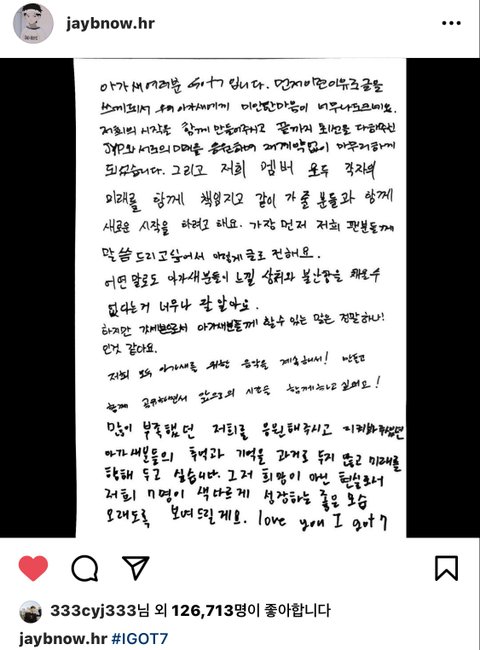 jaybnow.hr
아가새 여러분 GOT7 입니다. 먼저 이런 이유로 글을
쓰게 되서 우리 아가새에게 미안한 마음이 너무나도 크네요.
저희의 시작을 함께 만들어주시고 끝까지 최선을 다해주신
JYP와 서로의 미래를 응원하며 재계약없이 마무리하게
되었습니다. 그리고 저희 멤버 모두 각자의
미래를 함께 책임지고 같이 가 줄 분들과 함께
새로운 시작을 하려고 해요. 가장 먼저 저희 팬분들께
말씀드리고 싶어서 이렇게 글로 전해요.
어떤 말로도 아가새분들이 느낄 상처와 불안감을 채울수
없다는거 너무나 잘 알아요.
하지만 갓세븐으로서 아가새분들께 할수 있는 말은 정말 하나!
인것 같아요.
저희 모두 아가새를 위한 음악을 계속해서! 만들고
함께 공유하면서 앞으로의 시간을 함께하고 싶어요!
많이 부족했던 저희를 응원해주시고 지켜봐주셨던
아가새분들의 추억과 기억을 과거로 두지 않고 미래를
향해 두고 싶습니다. 그저 희망이 아닌 현실로서
저희 7명이 색다르게 성장하는 좋은 모습
오래도록 보여드릴게요. love you I got7
333cyj333님 외 126,713명이 좋아합니다
jaybnow.hr #IGOT7